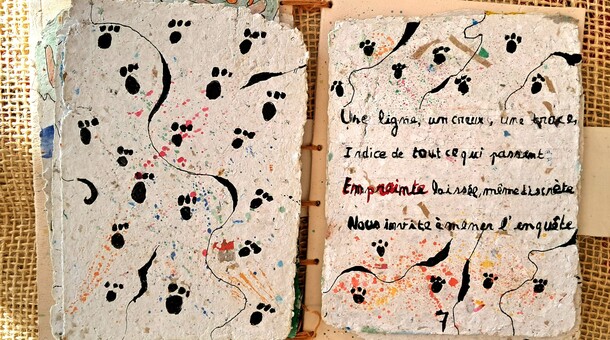 Une ligne, un creux, une trace,
Indice de tout ce qui passent
Empreinte laissée, même discrète
Nous invite à mener l'enquête
7